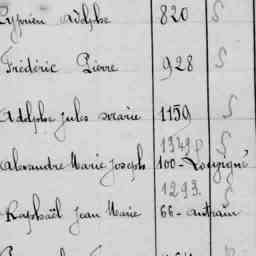 Cyprien Adolphe 820 S
Frédéric Pierre 928 S
Adolphe Jules Marie 1159 S
1349 S
Alexandre Marie Joseph 100 - Louvigné
1293. S
Raphaël Jean Marie 66 - Antrain